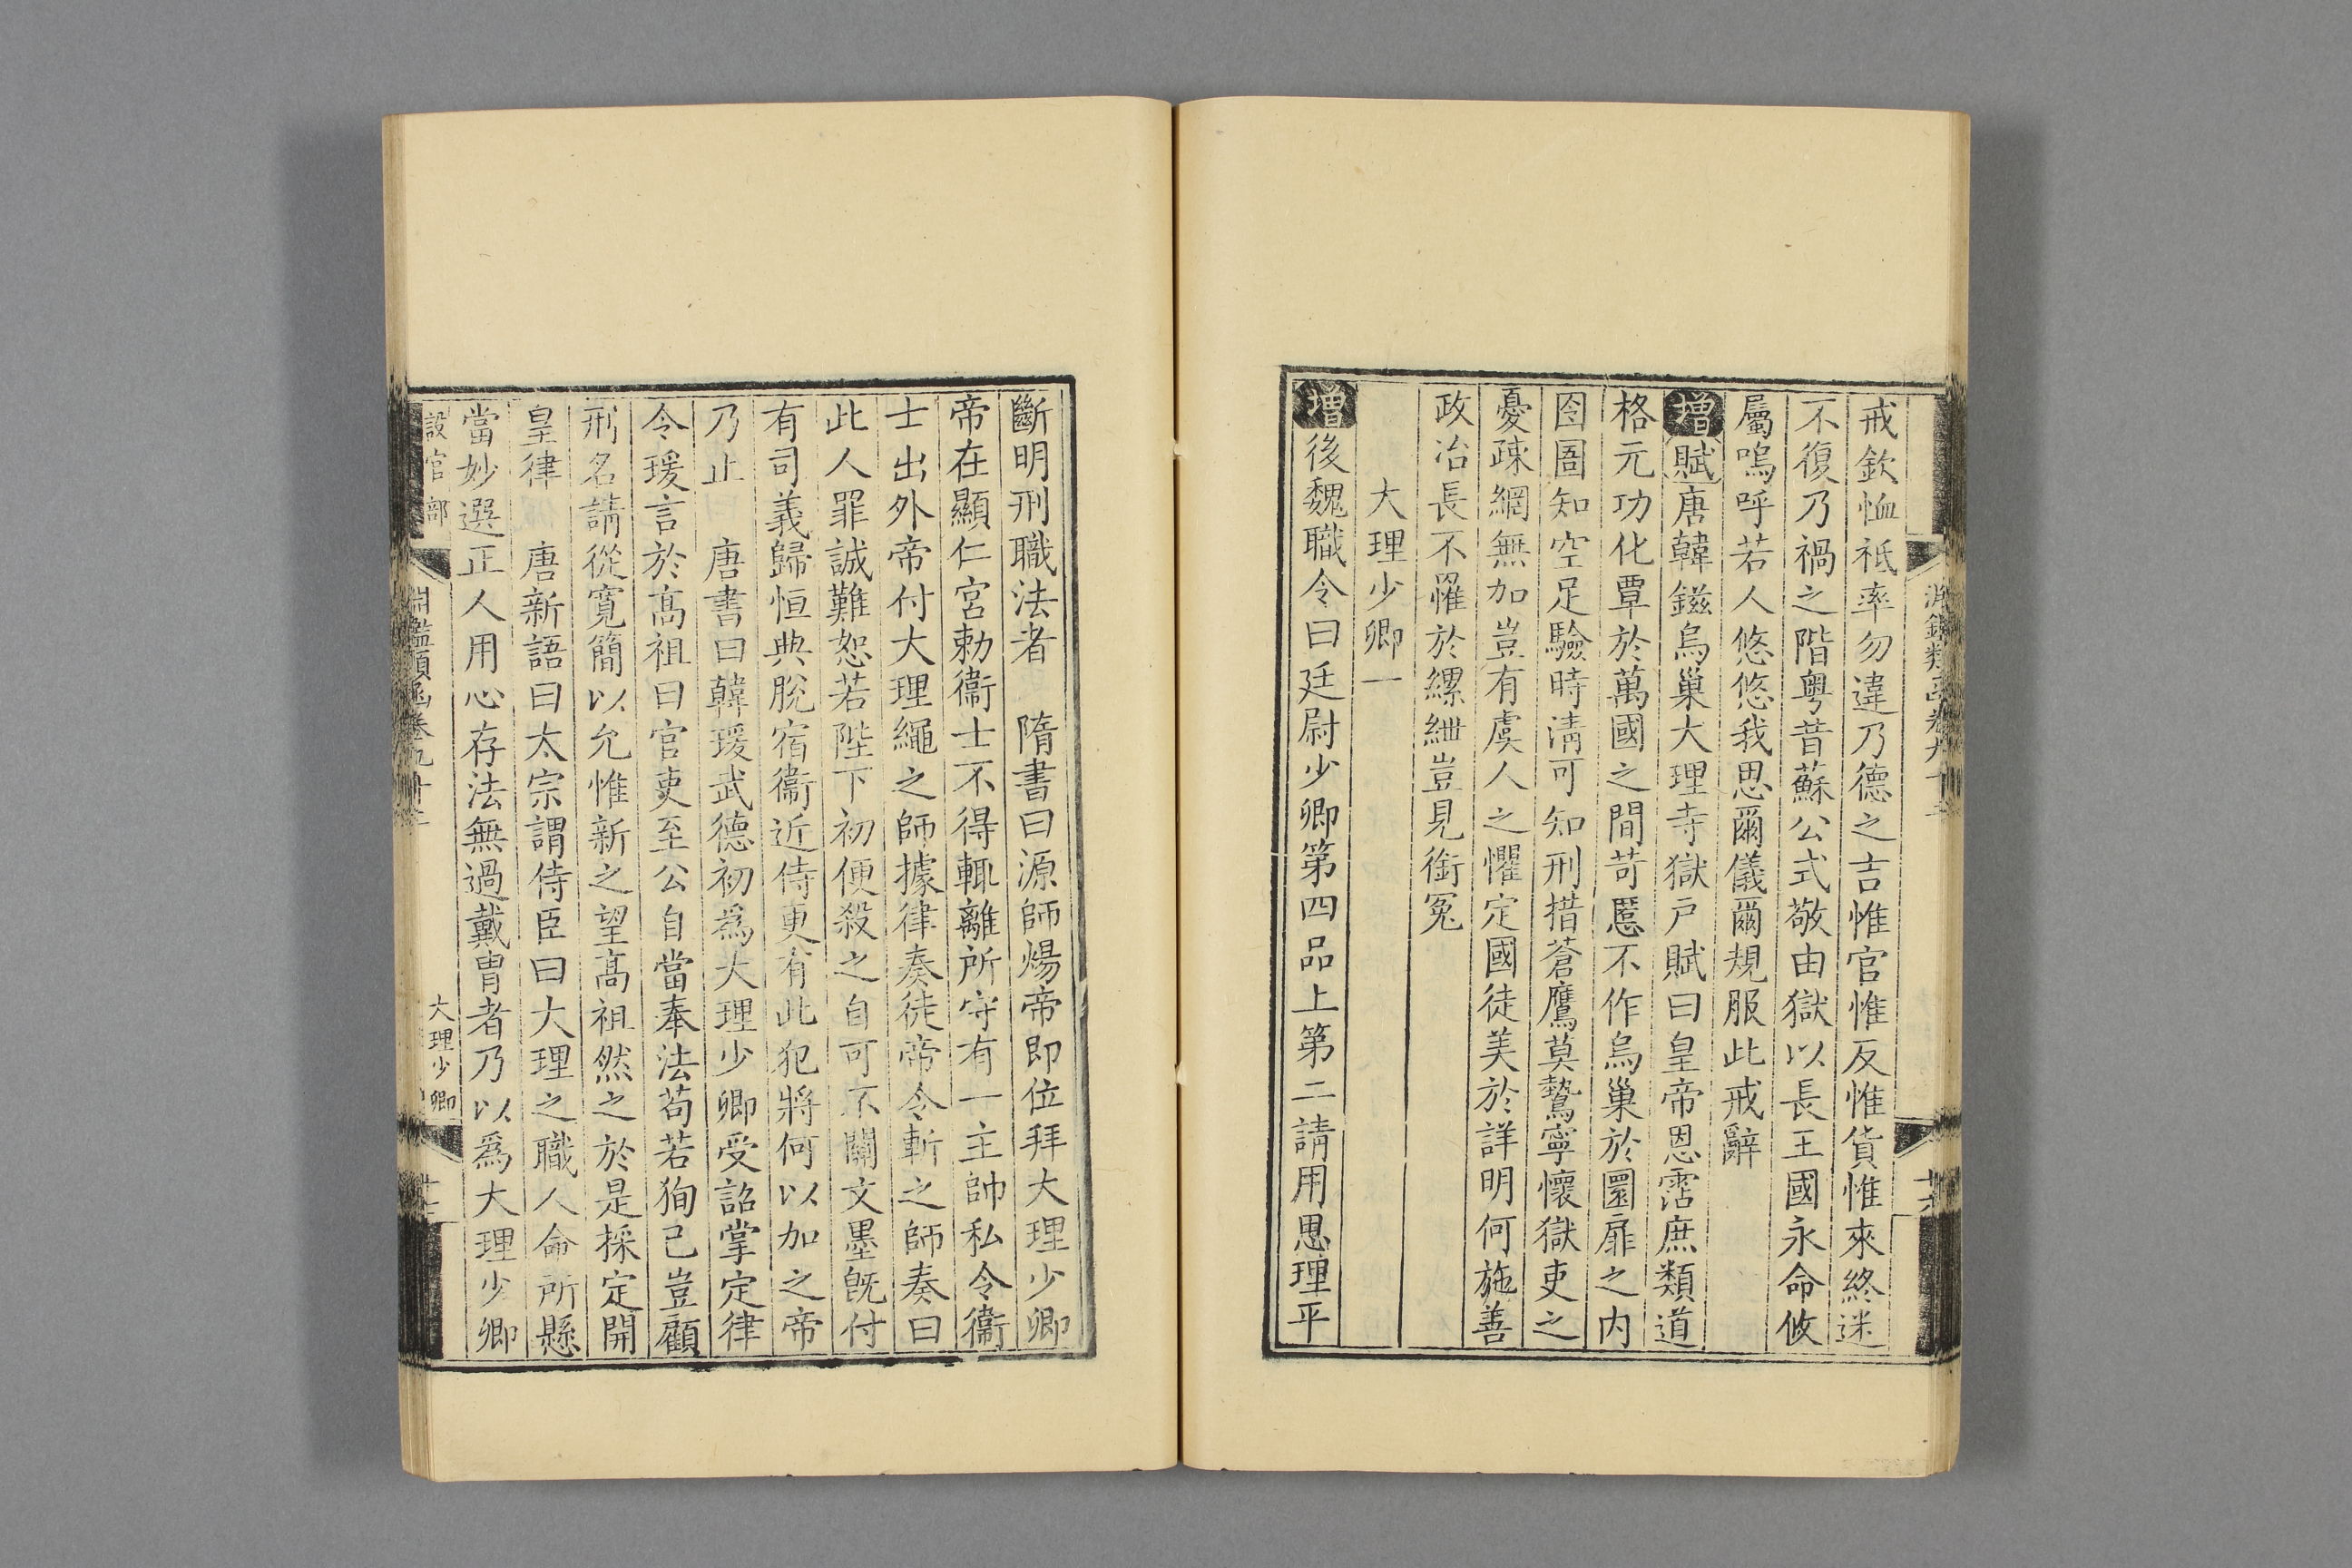 戒欽恤祗率勿違乃德之吉惟官惟反惟貨惟來終迷
不復乃禍之階粤昔蘇公式敬由獄以長王國永命攸
屬嗚呼若人悠悠我思爾儀爾規服此戒辭
增賦唐韓鎡烏巢大理寺獄戸賦曰皇帝恩霑庶類道
格元功化覃於萬國之間苛慝不作烏巢於圜扉之内
囹圄知空足驗時清可知刑措蒼鷹莫鷙寧懷獄吏之
憂疎網無加豈有虞人之懼定國徒美於詳明何施善
政冶長不罹於縲紲豈見銜冤
大理少卿一
增後魏職令曰廷尉少卿第四品上第二請用思理平
斷明刑職法者 隋書曰源師煬帝即位拜大理少卿
帝在顯仁宮勅衞士不得輒離所守有一主帥私令衞
士出外帝付大理繩之師據律奏徒帝令斬之師奏曰
此人罪誠難恕若陛下初便殺之自可不關文墨旣付
有司義歸恒典脫宿衞近侍更有此犯將何以加之帝
乃止 唐書曰韓瑗武德初爲大理少卿受詔掌定律
令瑗言於高祖曰官吏至公自當奉法苟若狥己豈顧
刑名請從寬簡以允惟新之望高祖然之於是採定開
皇律 唐新語曰太宗謂侍臣曰大理之職人命所懸
當妙選正人用心存法無過戴胄者乃以爲大理少卿
設官部
淵鑑類函卷九十三
大理少卿